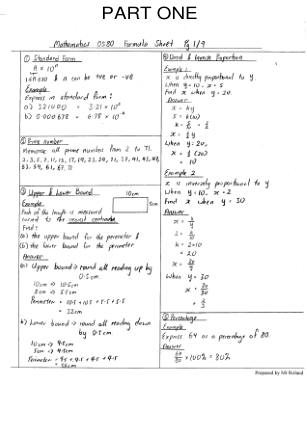 PART ONE
Mathematics 0580 Formula Sheet Pg 1/9
① Standard Form
A × 10ⁿ
1≤A≤10 & n can be +ve or -ve
Example
Express in standard form:
a) 321000 = 3.21 × 10⁵
b) 0.000678 = 6.78 × 10⁻⁴
② Prime number
Memorise all prime numbers from 2 to 71.
2, 3, 5, 7, 11, 13, 17, 19, 23, 29, 31, 37, 41, 43, 47,
53, 59, 61, 67, 71
③ Upper & Lower Bound
10cm
5cm
Example
Each of the length is measured
correct to the nearest centimetre
Find:
(a) the upper bound for the perimeter &
(b) the lower bound for the perimeter.
Answer
a) Upper bound → round all reading up by
0.5cm.
10cm → 10.5cm
5cm → 5.5cm
Perimeter = 10.5 + 10.5 + 5.5 + 5.5
= 32cm
b) Lower bound → round all reading down
by 0.5cm
10cm → 9.5cm
5cm → 4.5cm
Perimeter = 9.5 + 9.5 + 4.5 + 4.5
= 28cm
④ Direct & Inverse Proportion
Example 1
x is directly proportional to y.
When y = 10, x = 5
Find x when y = 20.
Answer
x = ky
5 = k(10)
x = ½ y
When y = 20,
x = ½ (20)
= 10
Example 2
x is inversely proportional to y
When y = 10, x = 2
Find x when y = 30
Answer
x = k/y
2 = k/10
k = 2×10
= 20
x = 20/y
When y = 30
x = 20/30
= 2/3
⑤ Percentage
Example
Express 64 as a percentage of 80.
Answer
64/80 × 100% = 80%
Prepared by Mr